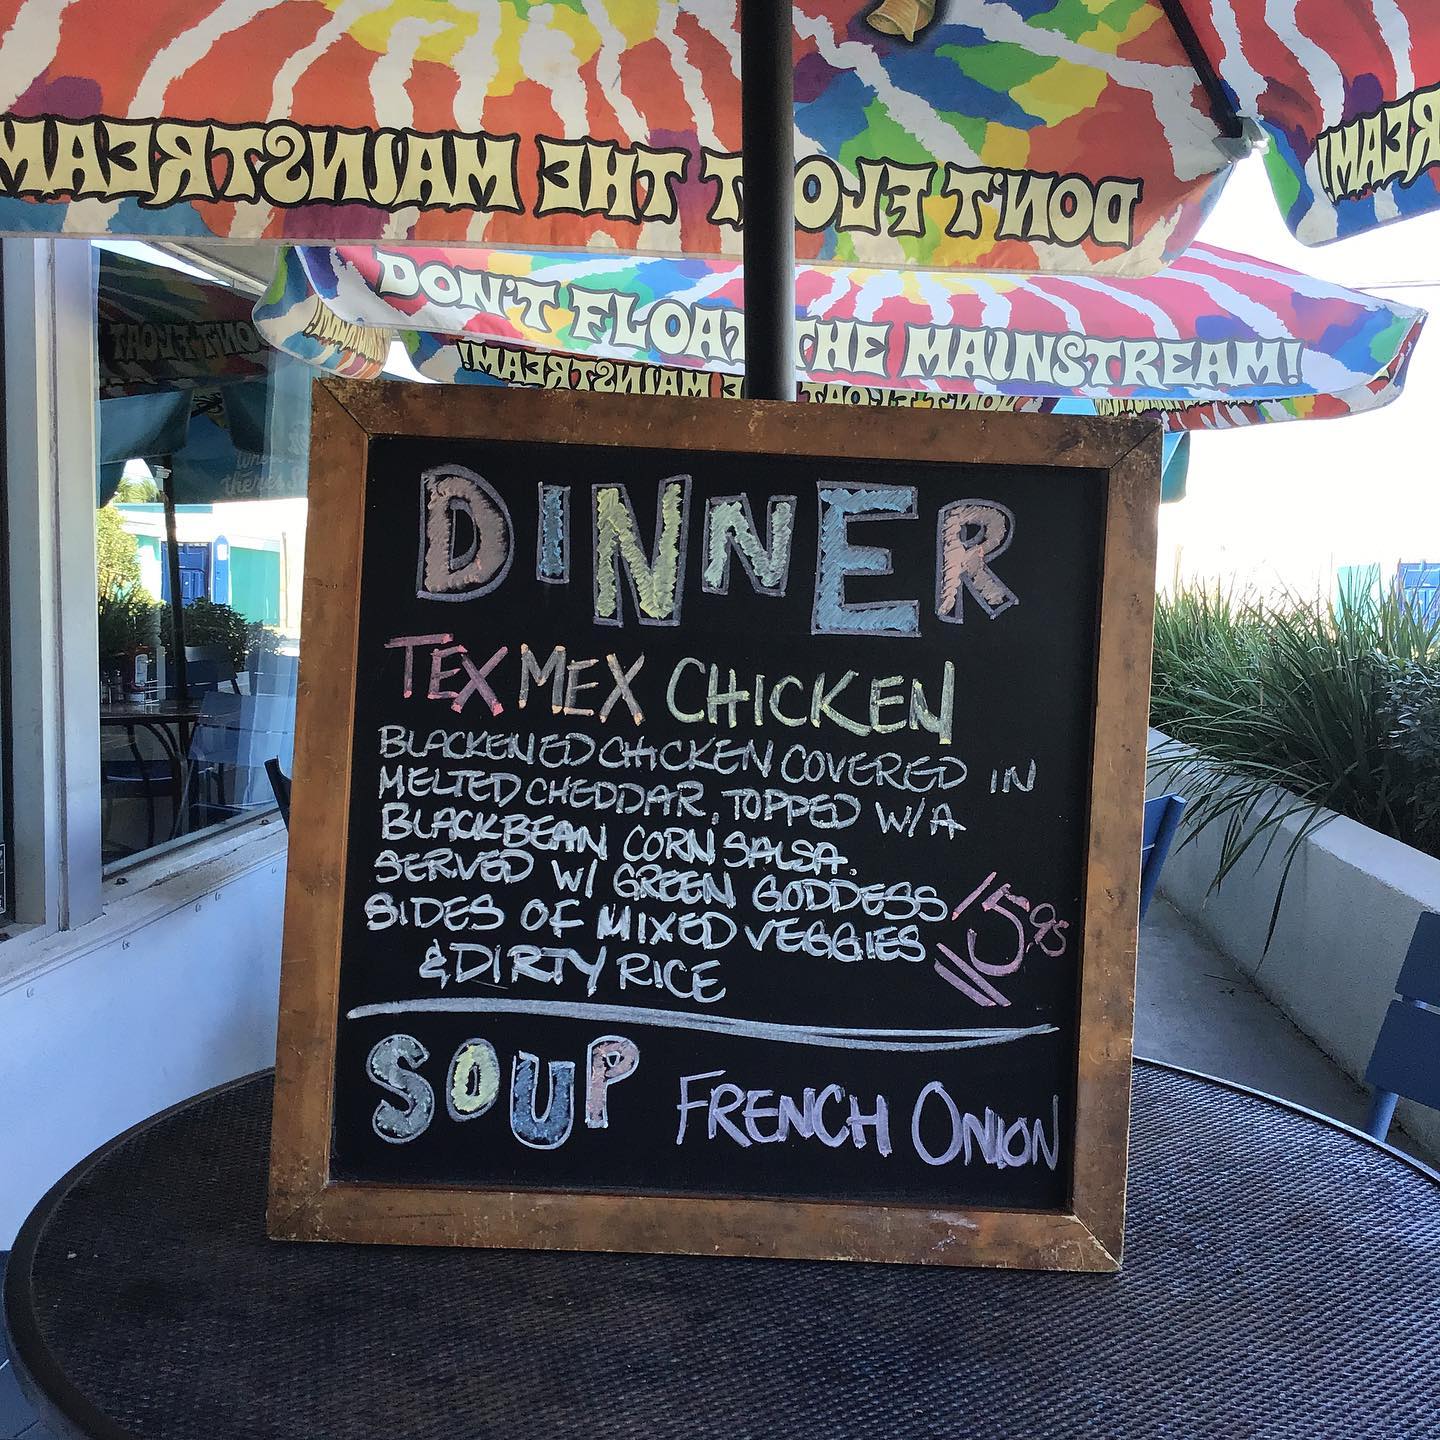 DON'T FLOAT THE MAINSTREAM
REAM!
DON'T FLOAT THE MAINSTREAM!
DON'T FLOAT THE MAINSTREAM!
DON'T FLOAT
DINNER
TEX MEX CHICKEN
BLACKENED CHICKEN COVERED IN
MELTED CHEDDAR, TOPPED W/A
BLACKBEAN CORN SALSA.
SERVED W/ GREEN GODDESS
SIDES OF MIXED VEGGIES
& DIRTY RICE
15.95
SOUP FRENCH ONION